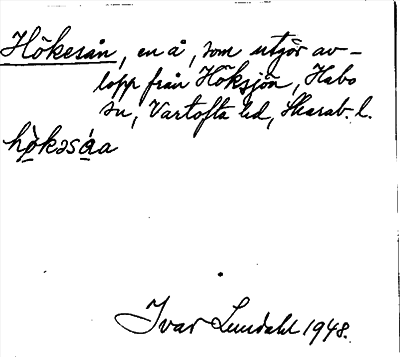 Hökesån, en å, som utgör av-
lopp från Höksjön, Habo
sn, Vartofta hd, Skarab. l.
hö̀kəsǻa
Ivar Lundahl 1948.